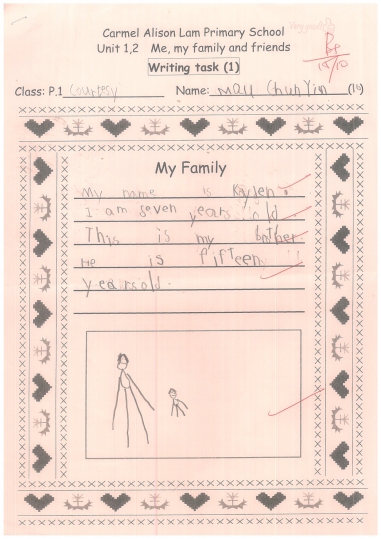 Carmel Alison Lam Primary School
Unit 1,2 Me, my family and friends
Writing task (1)
Class: P.1 Courtesy Name: Mau Chun Yin (14)
My Family
My name is Kayjen.
I am seven years old.
This is my brother.
He is fifteen
years old.